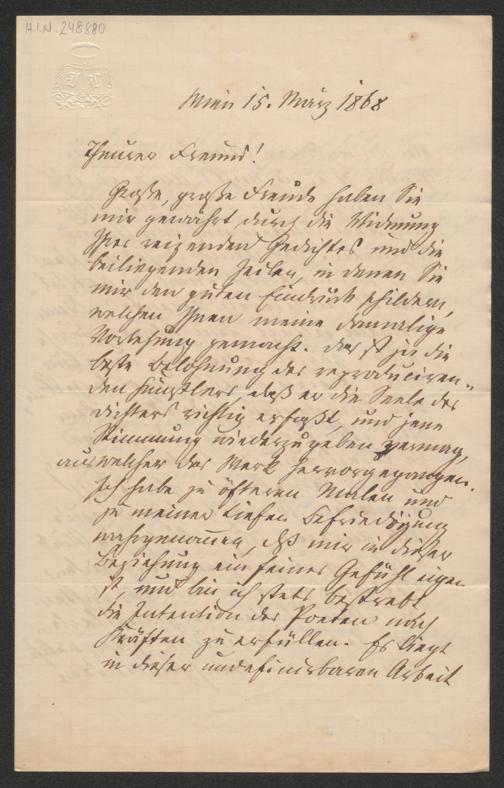 H.I.N. 248880
Wien 15. März 1868
Theurer Freund!
Große, große Freude haben Sie
mir gewährt durch die Widmung
Ihres reizenden Gedichtes und die
beiliegenden Zeilen, in denen Sie
mir den guten Eindruck schildern,
welchen Ihnen meine damalige
Vorlesung gemacht. Das ist ja die
beste Belohnung des reproduciren-
den Künstlers, daß er die Seele des
Dichters richtig erfaßt, und jene
Stimmung wiederzugeben vermag,
aus welcher das Werk hervorgegangen.
Ich habe zu öfteren Malen und
zu meiner tiefen Befriedigung
wahrgenommen, daß mir in dieser
Beziehung ein feines Gefühl eigen
ist, und bin ich stets bestrebt
die Intention des Poeten nach
Kräften zu erfüllen. Es liegt
in dieser undefinirbaren Arbeit